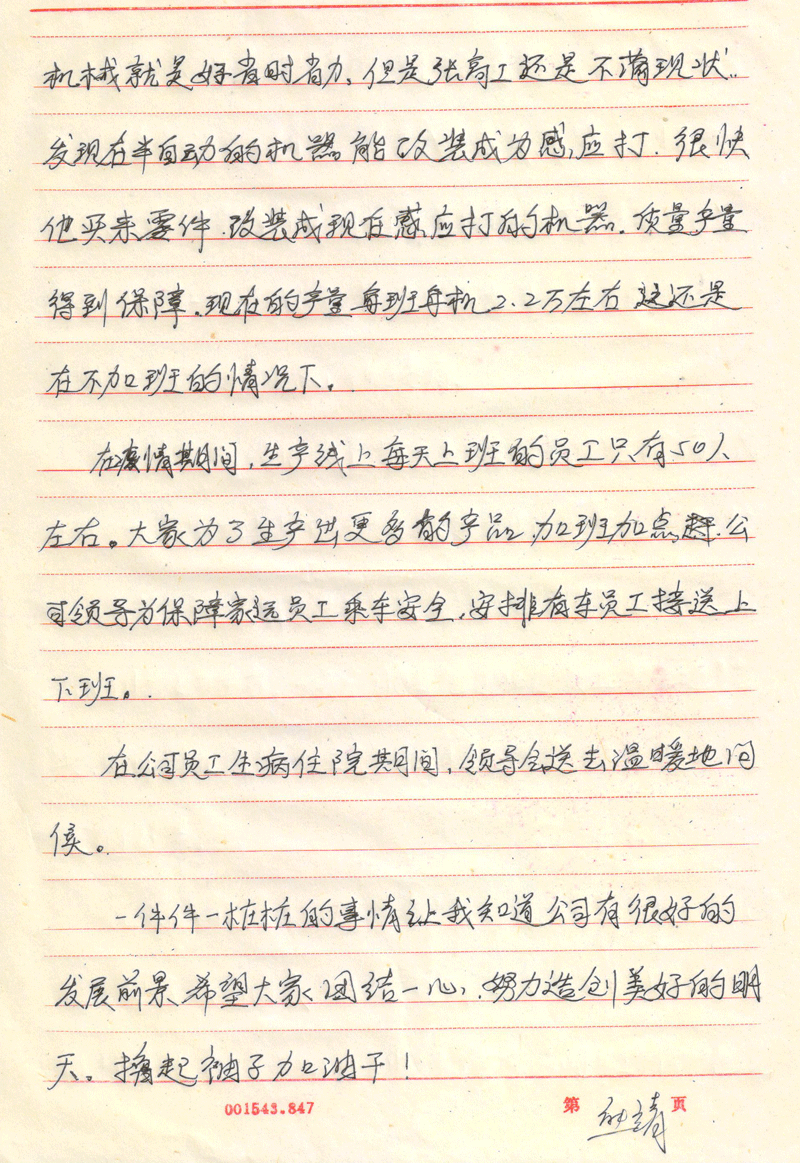 机械就是好省时省力、但是张高工还是不满现状.
发现在半自动的机器能改装成为感应打.很快
他买来零件.改装成现在感应打的机器.质量产量
得到保障.现在的产量每班每机2.2万左右 这还是
在不加班的情况下。
在疫情期间,生产线上每天上班的员工只有50人
左右。大家为了生产出更多的产品,加班加点赶.公
司领导为保障家远员工乘车安全,安排有车员工接送上
下班。
在公司员工生病住院其间,领导会送去温暖地问
候。
一件件一桩桩的事情让我知道公司有很好的
发展前景 希望大家团结一心,努力造创美好的明
天。撸起袖子加油干!
001543.847 第 页